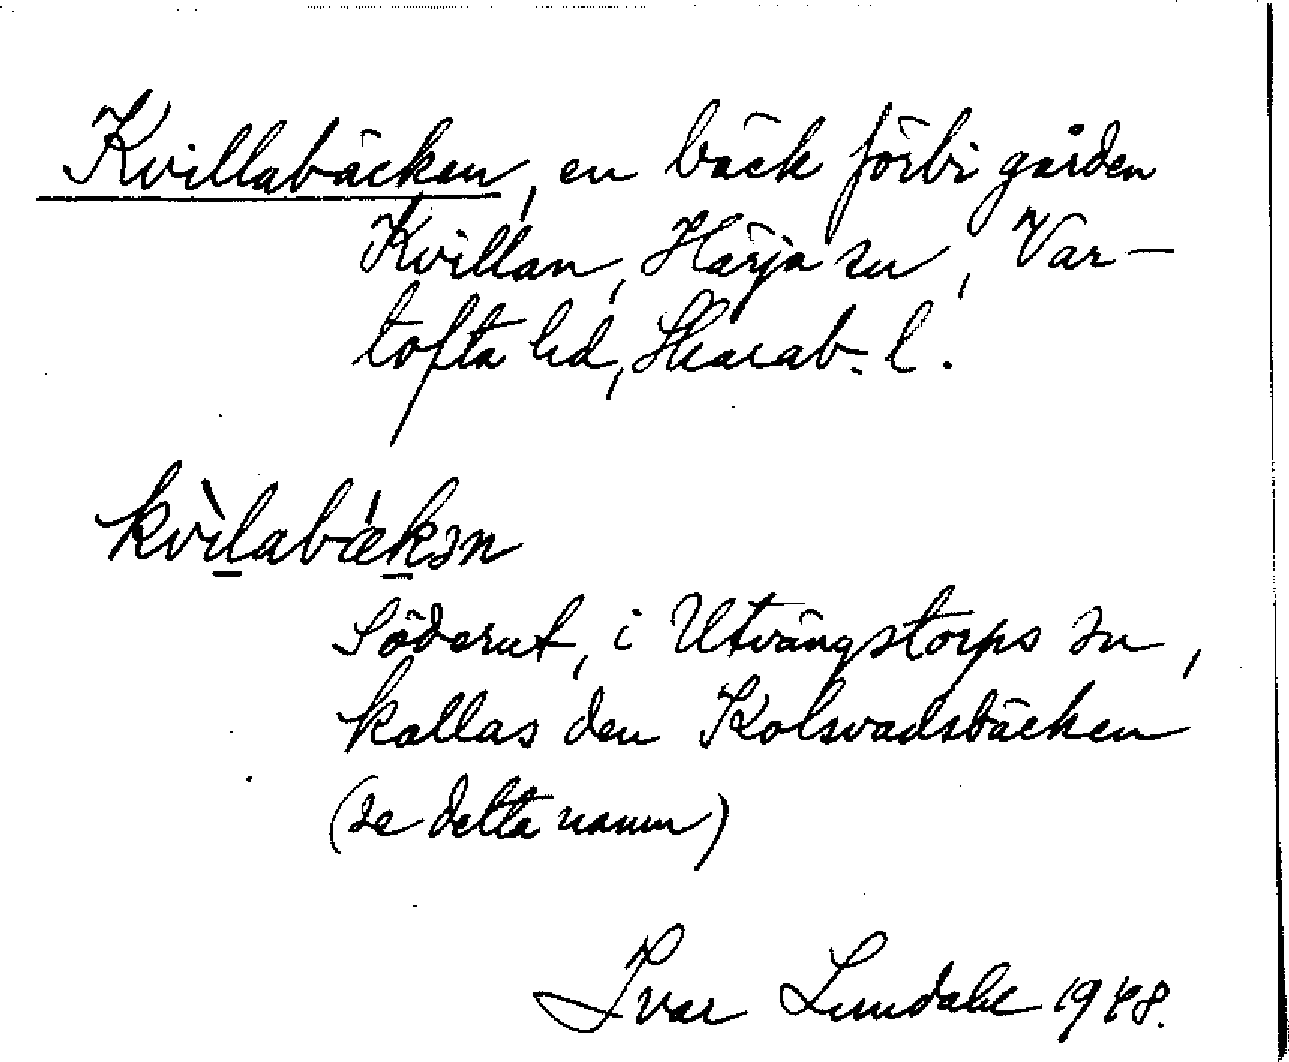 Kvillabäcken, en bäck förbi gården
Kvillan, Härja sn, Var-
tofta hd, Skarab. l.
kvìl̲abǽk̲ən
Söderut, i Utvängstorps sn,
kallas den Kolsvadsbäcken
(se detta namn)
Ivar Lundahl 1948.